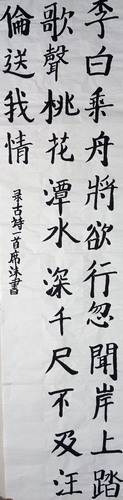 李白乘舟將欲行忽聞岸上踏
歌聲桃花潭水深千尺不及汪
倫送我情
录古诗一首席沫書